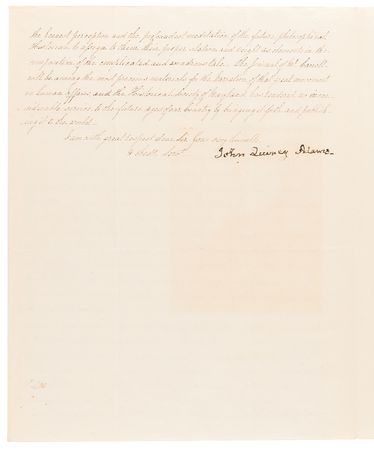 the keenest perception and the profoundest meditation of the future philosophical
Historian to assign to them their proper station and weight as elements in the
composition of the complicated and wondrous tale. The Journal of Mr
will be among the most precious materials for the narration of that great movement
in human affairs, and the Historical Society of have rendered an
service to the future ages of our Country by bringing it forth and publish
ing it to the world.
I am with great respect, dear Sir, Your very humble
& obedt. Servt.
John Quincy Adams.